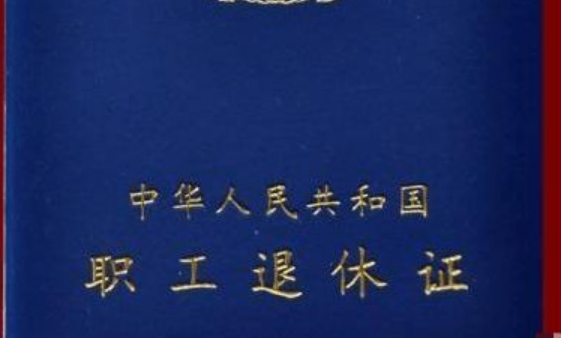 中华人民共和国
职工退休证